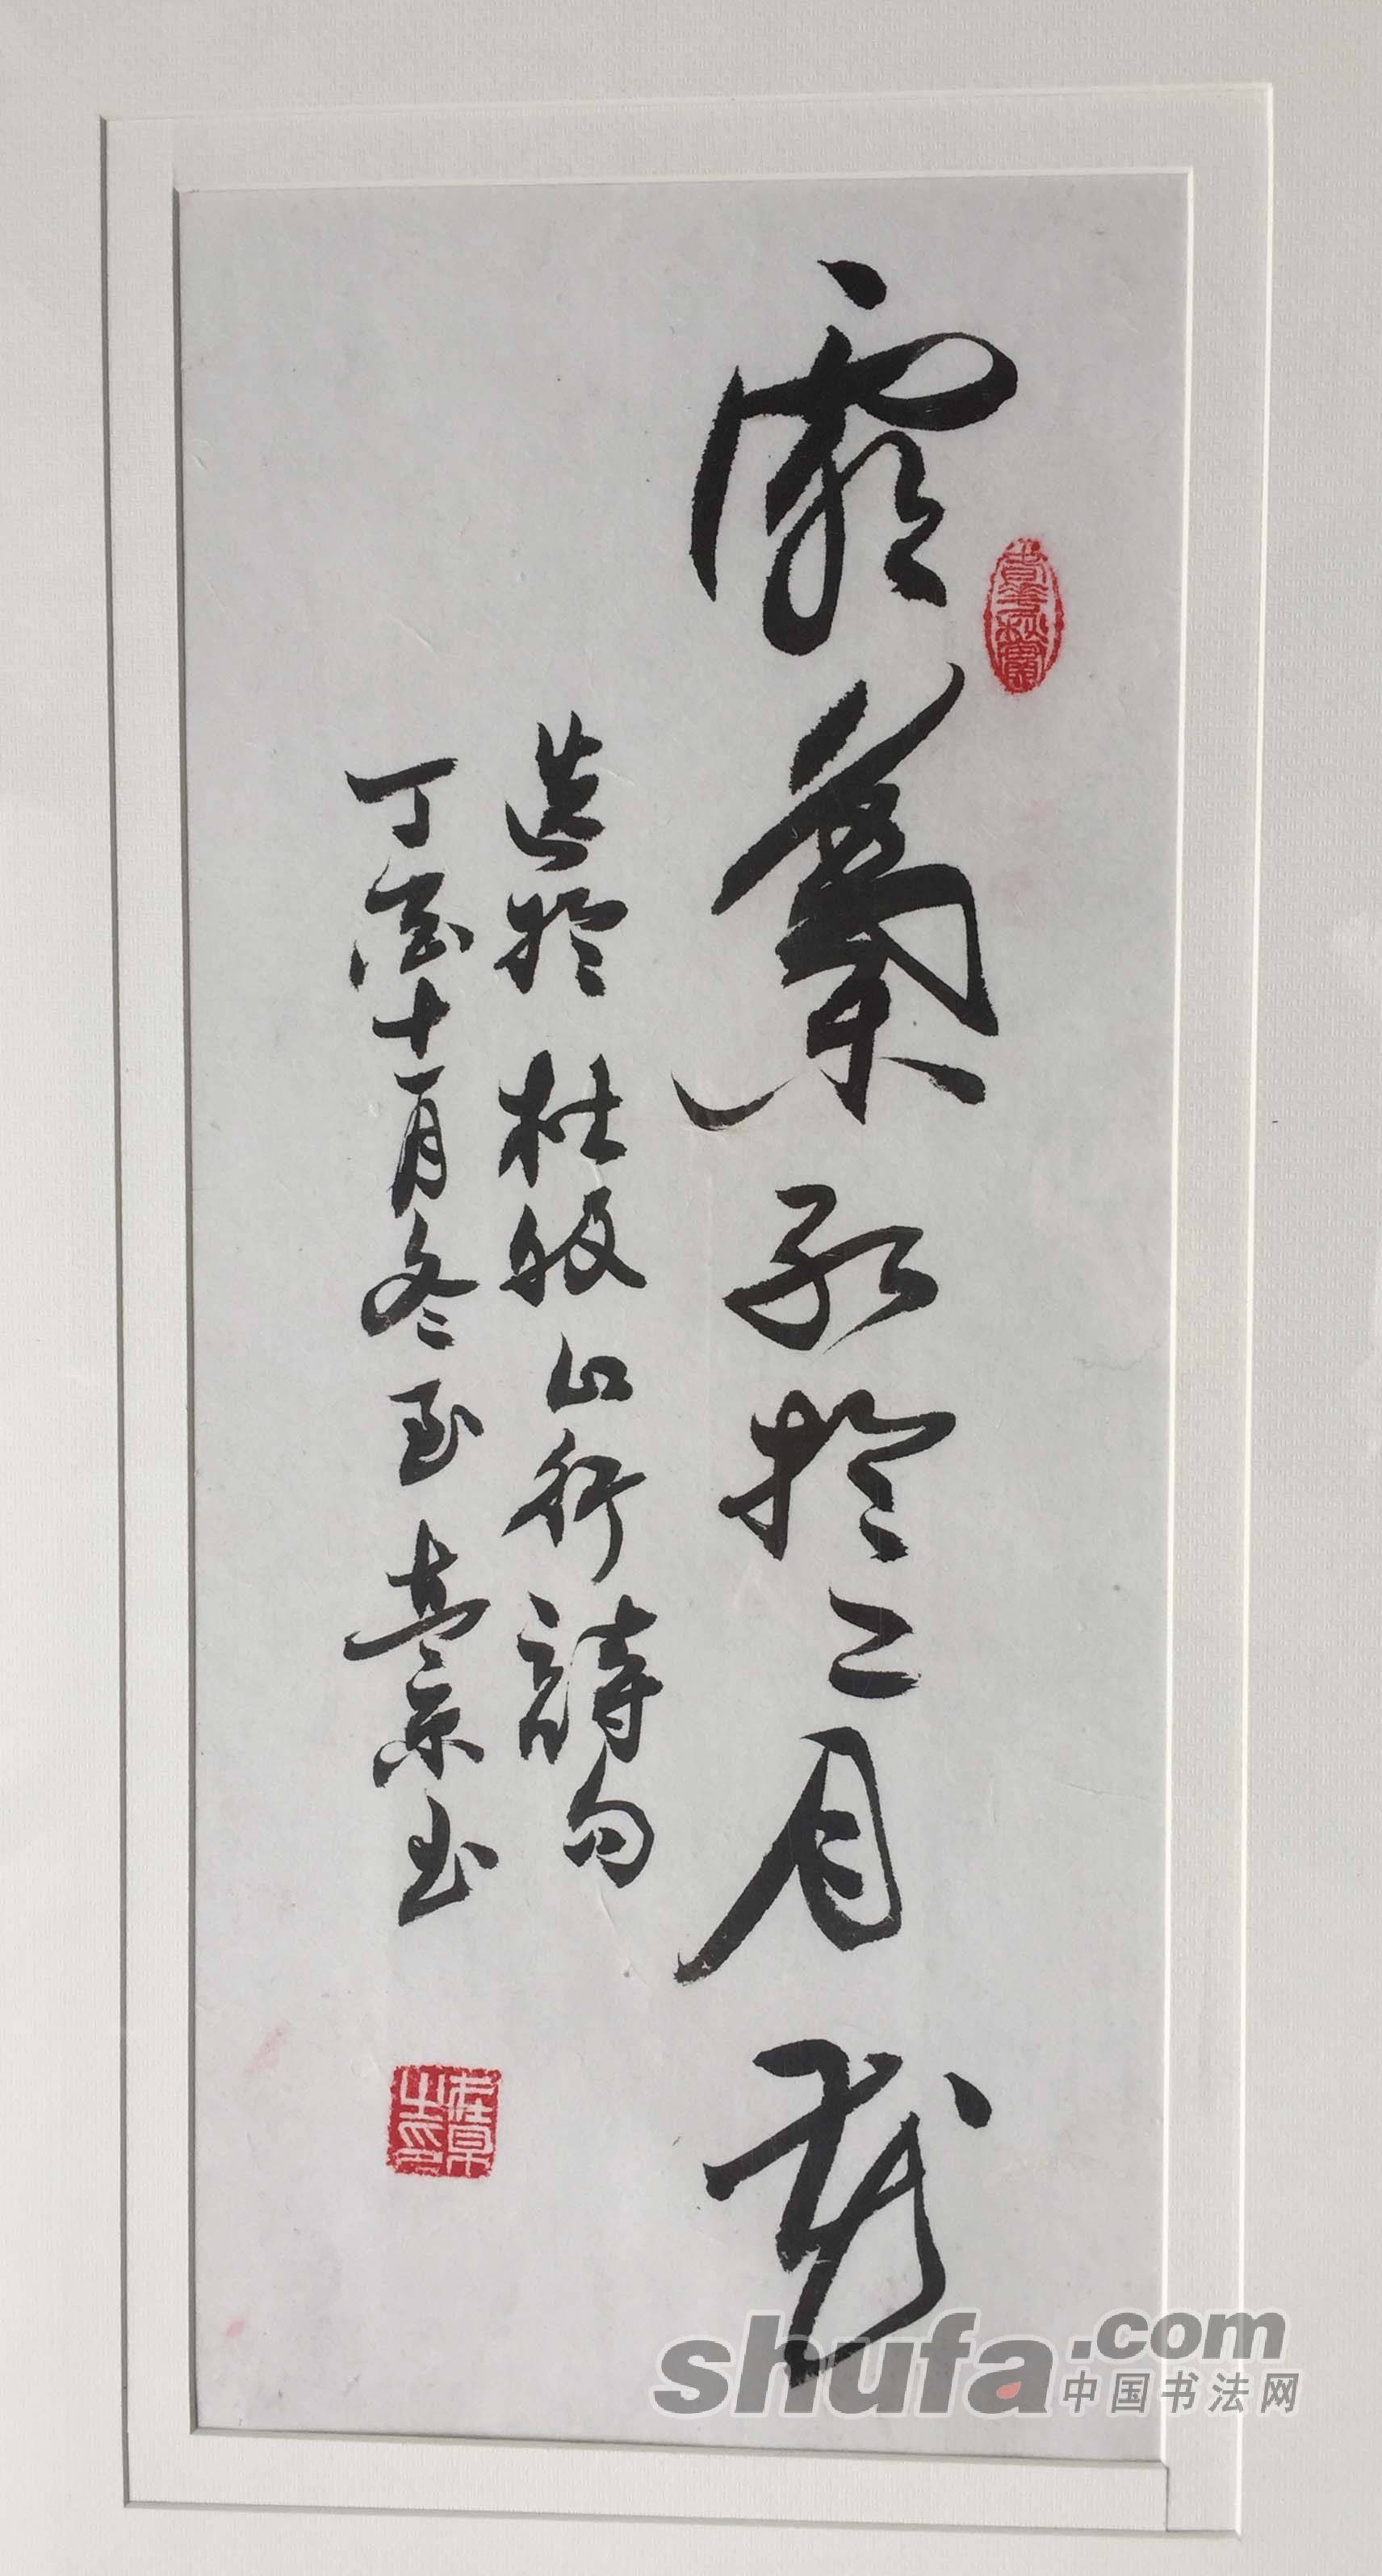 霜葉紅於二月花
春華秋實
选於杜牧山行詩句
丁酉十一月冬至 书
shufa.com
中国书法网